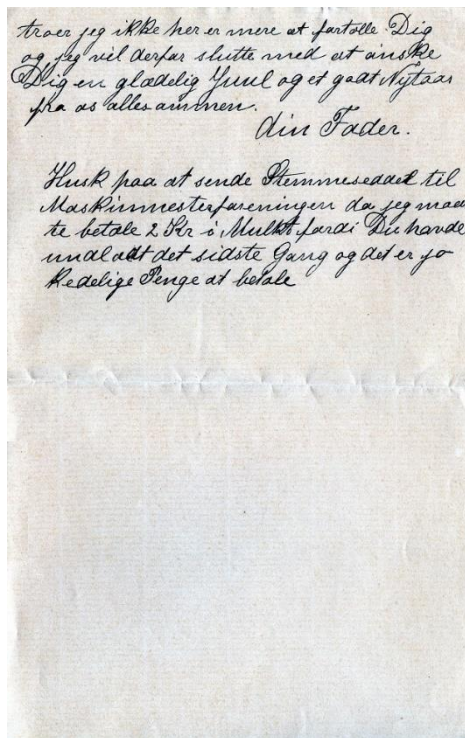 troer jeg ikke her er mere at fortælle Dig
og jeg vil derfor slutte med at ønske
Dig en glædelig Juul og et godt Nytaar
fra os allesammen.
din Fader.
Husk paa at sende Stemmeseddel til
Maskinmesterforeningen da jeg maa
te betale 2 Kr i Mulkt fordi Du havde
undladt det sidste Gang og det er jo
kedelige Penge at betale